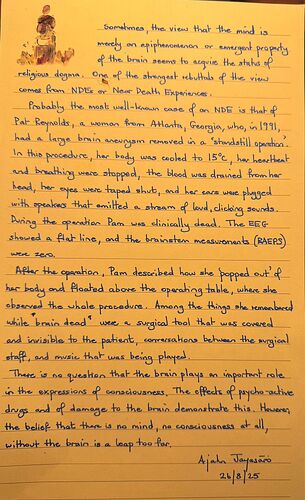 Sometimes, the view that the mind is
merely an epiphenomenon or emergent property
of the brain seems to acquire the status of
religious dogma. One of the strongest rebuttals of the view
comes from NDEs or Near Death Experiences.
Probably the most well-known case of an NDE is that of
Pat Reynolds, a woman from Atlanta, Georgia, who, in 1991,
had a large brain aneurysm removed in a "standstill operation".
In this procedure, her body was cooled to 15°C, her heartbeat
and breathing were stopped, the blood was drained from her
head, her eyes were taped shut, and her ears were plugged
with speakers that emitted a stream of loud, clicking sounds.
During the operation Pam was clinically dead. The EEG
showed a flat line, and the brainstem measurements (BAEPS)
were zero.
After the operation, Pam described how she 'popped out' of
her body and floated above the operating table, where she
observed the whole procedure. Among the things she remembered
while "brain dead" were a surgical tool that was covered
and invisible to the patient, conversations between the surgical
staff, and music that was being played.
There is no question that the brain plays an important role
in the expressions of consciousness. The effects of psycho-active
drugs and of damage to the brain demonstrate this. However,
the belief that there is no mind, no consciousness at all,
without the brain is a leap too far.
Ajahn Jayasāro
26/8/25